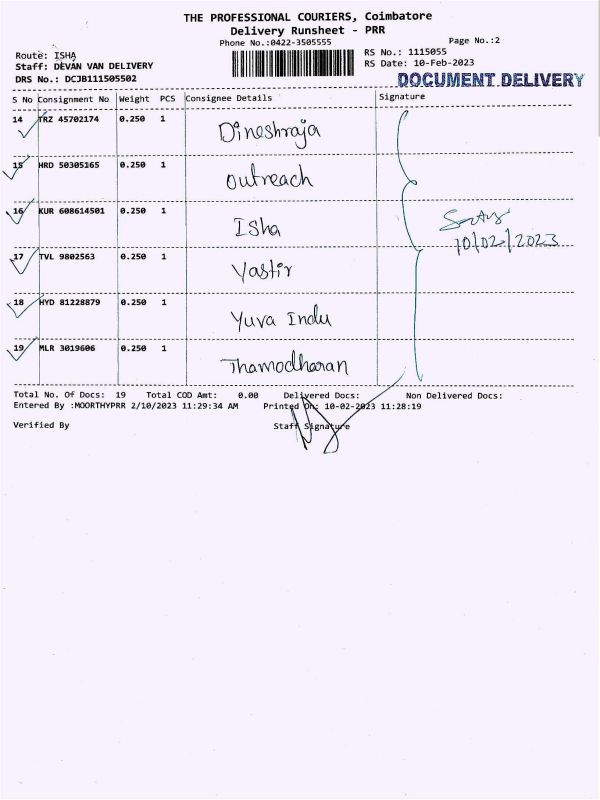 THE PROFESSIONAL COURIERS, Coimbatore
Delivery Runsheet - PRR
Phone No.:0422-3505555
Page No.:2
Route: ISHA
RS No.: 1115055
Staff: DEVAN VAN DELIVERY
RS Date: 10-Feb-2023
DRS No.: DCJB111505502
DOCUMENT DELIVERY
S No Consignment No Weight PCS Consignee Details Signature
14 TRZ 45702174 0.250 1 Dineshraja
15 HRD 50305165 0.250 1 Outreach
16 KUR 608614501 0.250 1 Isha
10/02/2023
17 TVL 9802563 0.250 1 Yastir
18 HYD 81228879 0.250 1 Yuva Indu
19 MLR 3019606 0.250 1 Thamodharan
Total No. Of Docs: 19 Total COD Amt: 0.00 Delivered Docs: Non Delivered Docs:
Entered By :MOORTHYPRR 2/10/2023 11:29:34 AM Printed On: 10-02-2023 11:28:19
Verified By Staff Signature